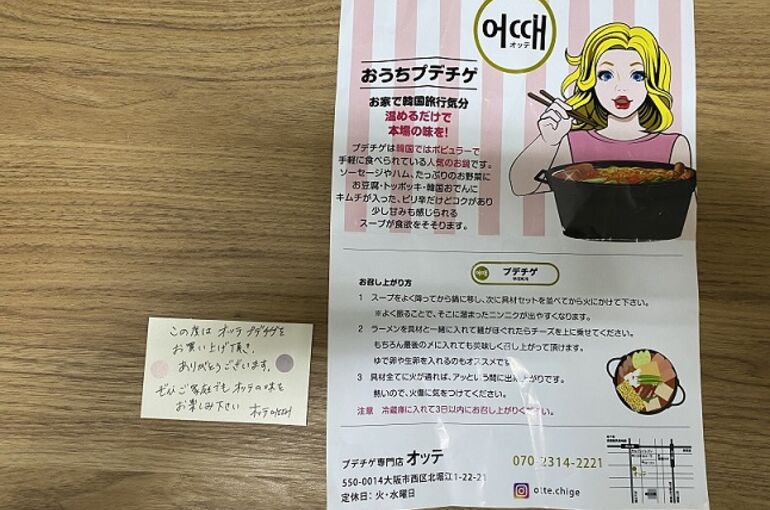 어때
オッテ
おうちプデチゲ
お家で韓国旅行気分
温めるだけで
本場の味を!
プデチゲは韓国ではポピュラーで
手軽に食べられている人気のお鍋です。
ソーセージやハム、たっぷりのお野菜に
お豆腐・トッポッキ・韓国おでんに
キムチが入った、ピリ辛だけどコクがあり
少し甘みも感じられる
スープが食欲をそそります。
어때 プデチゲ
お召し上がり方
1 スープをよく降ってから鍋に移し、次に具材セットを並べてから火にかけて下さい。
※よく振ることで、そこに溜まったニンニクが出やすくなります。
2 ラーメンを具材と一緒に入れて麺がほぐれたらチーズを上に乗せてください。
もちろん最後の〆に入れても美味しく召し上がって頂けます。
ゆで卵や生卵を入れるのもオススメです
3 具材全てに火が通れば、アッという間に出来上がりです。
熱いので、火傷に気をつけてください。
注意 冷蔵庫に入れて3日以内にお召し上がりください。
プデチゲ専門店 オッテ
070-2314-2221
550-0014大阪市西区北堀江1-22-21
定休日:火・水曜日
otte.chige
この度は オッテ プデチゲを
お買い上げ頂き、
ありがとうございます。
ぜひご家庭でもオッテの味を
お楽しみ下さい オッテ